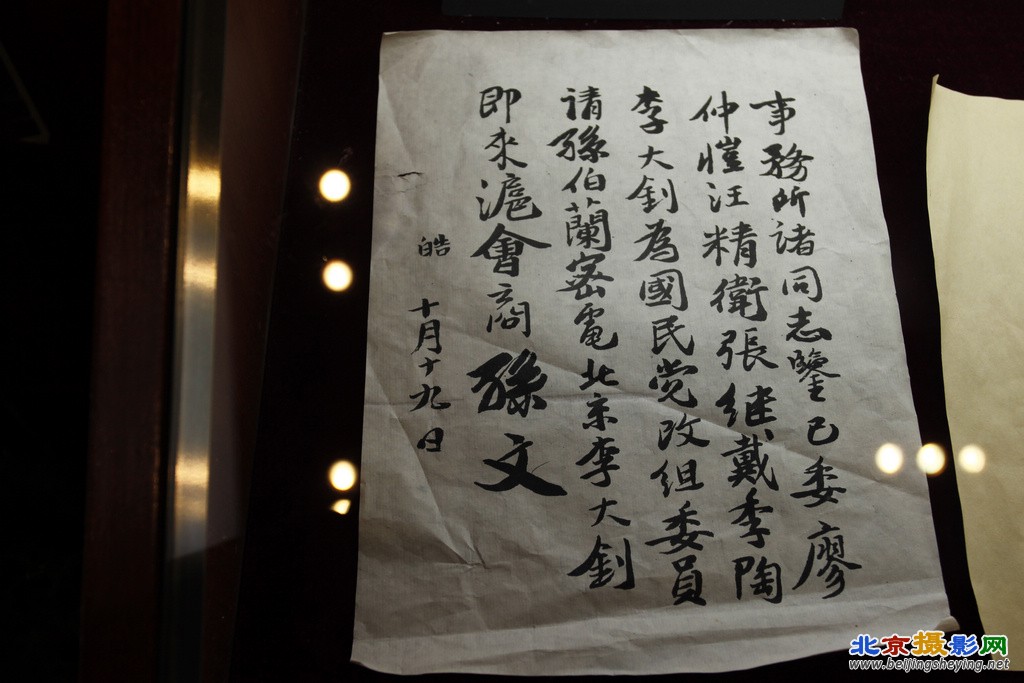 事務所諸同志鑒已委廖
仲愷汪精衛張继戴季陶
李大釗為國民党改组委員
請孫伯蘭密電北京李大釗
即來滬會商 孫文
皓 十月十九日
北京摄影网
www.beijingsheying.net